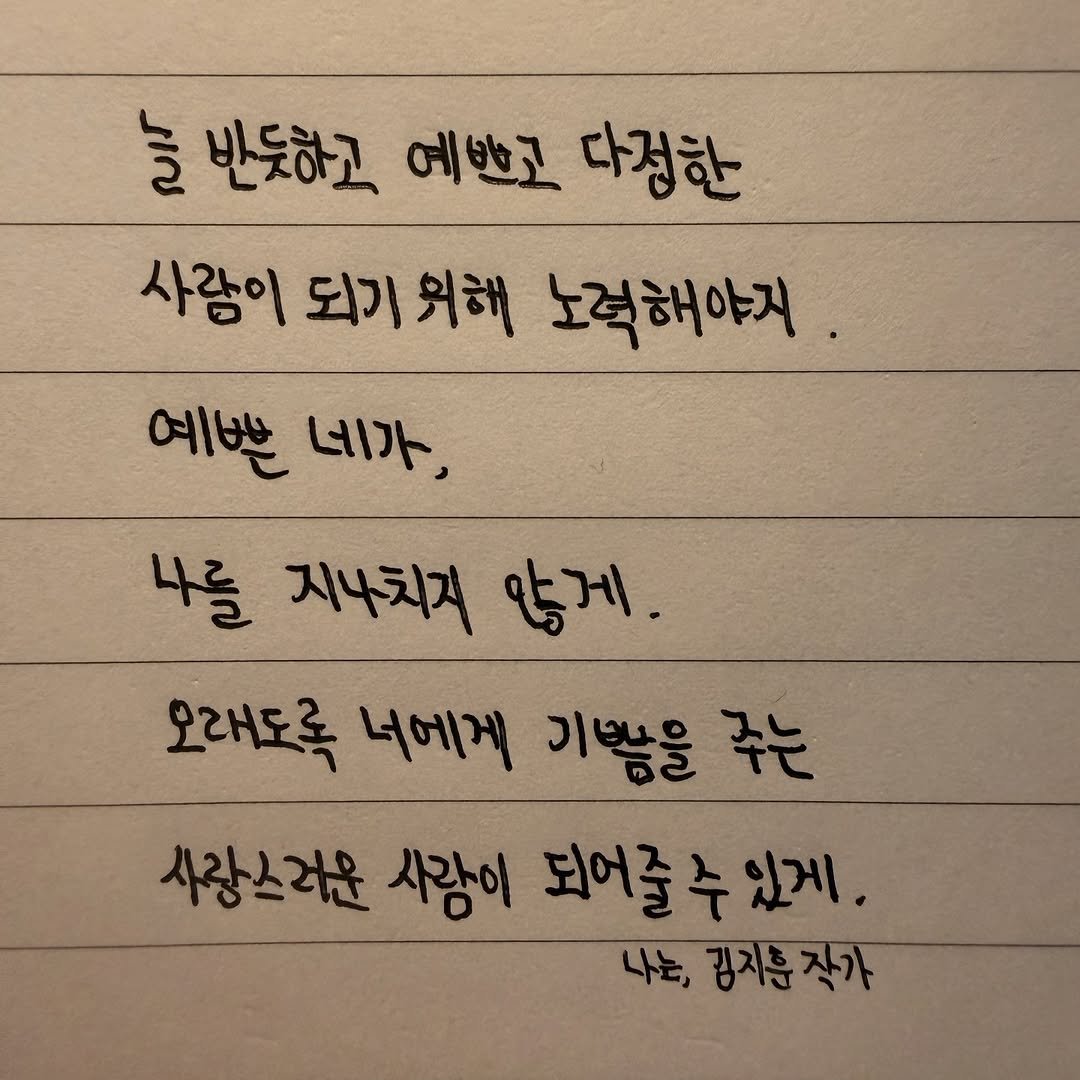 늘 반듯하고 예쁘고 다정한
사람이 되기 위해 노력해야지.
예쁜 네가,
나를 지나치지 않게.
오래도록 너에게 기쁨을 주는
사랑스러운 사람이 되어줄 수 있게.
나는, 김지훈 작가